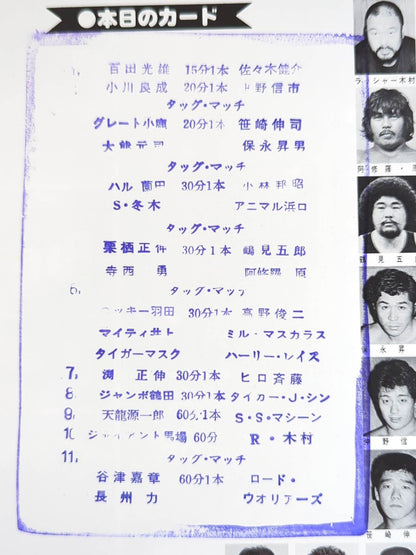 ●本日のカード
1. 百田光雄 15分1本 佐々木健介
小川良成 20分1本 上野信市
タッグ・マッチ
グレート小鹿 20分1本 笹崎伸司
大熊元司 保永昇男
タッグ・マッチ
ハル薗田 30分1本 小林邦昭
S・冬木 アニマル浜口
タッグ・マッチ
栗栖正伸 30分1本 鶴見五郎
寺西 勇 阿修羅 原
6. タッグ・マッチ
ロッキー羽田 30分1本 高野俊二
マイティ井上 ミル・マスカラス
タイガーマスク ハーリー・レイス
7. 渕 正伸 30分1本 ヒロ斉藤
8. ジャンボ鶴田 30分1本 タイガー・J・シン
9. 天龍源一郎 60分1本 S・S・マシーン
10. ジャイアント馬場 60分 R・木村
11. タッグ・マッチ
谷津嘉章 60分1本 ロード・
長州 力 ウオリアーズ
ラッシャー木村
阿修羅・原
鶴見五郎
保永昇
野信
笹崎伸